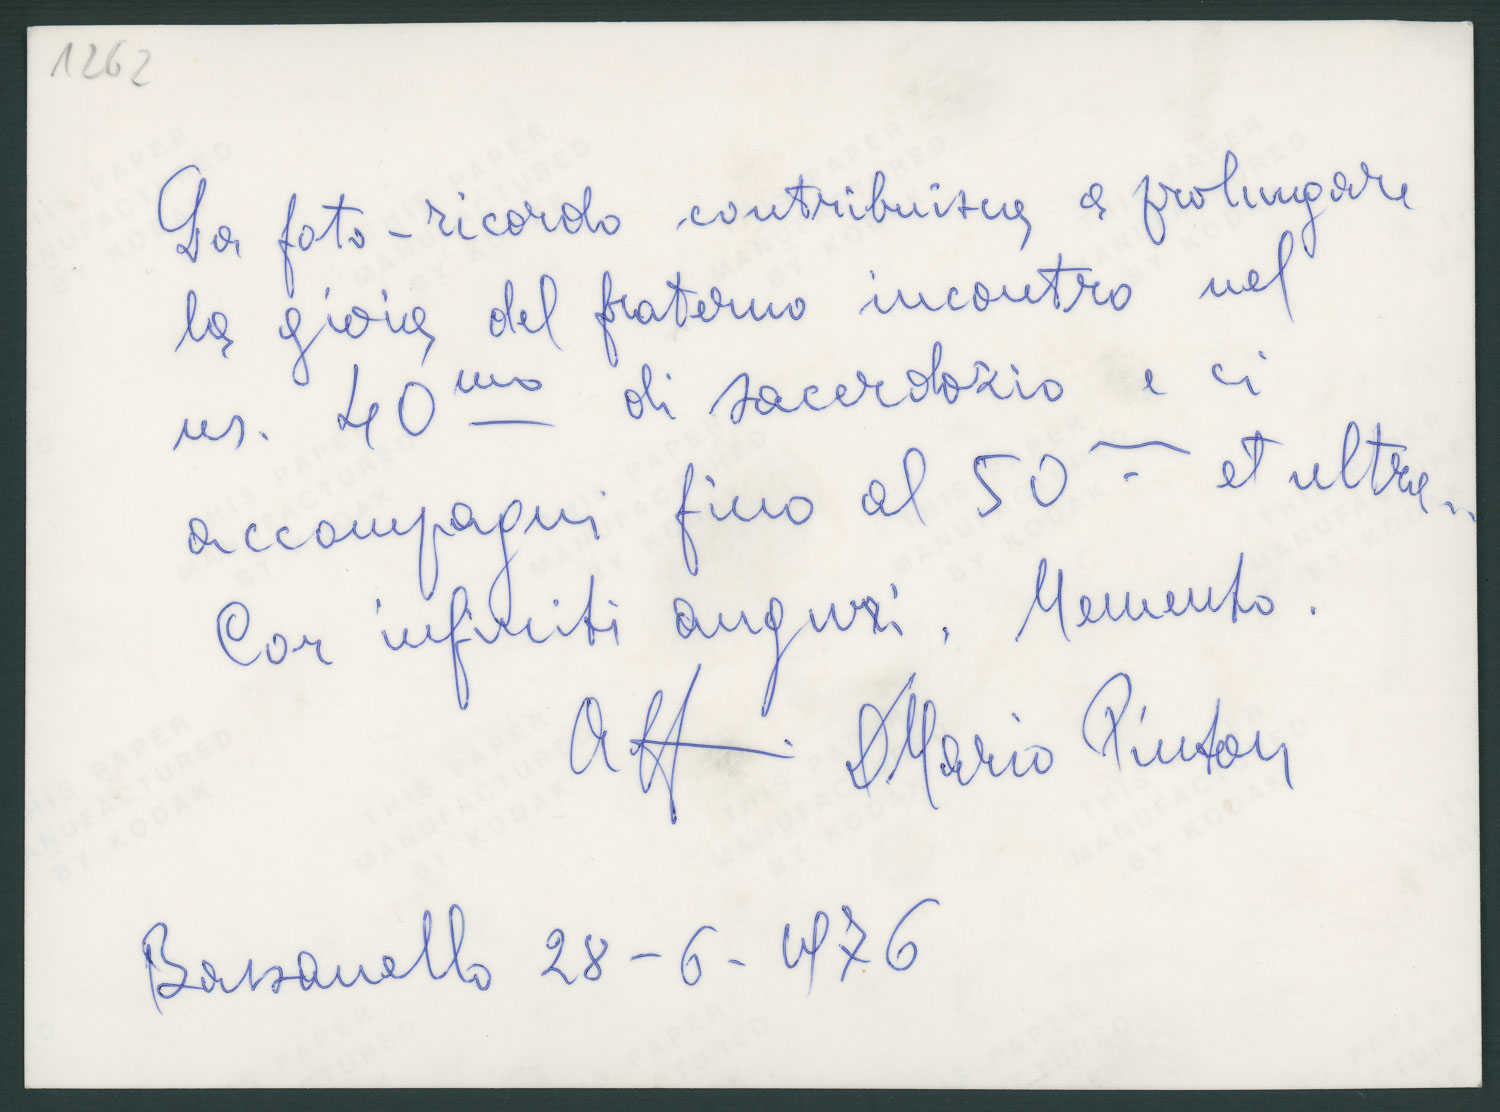 1262
La foto-ricordo contribuisca a prolungare
la gioia del fraterno incontro nel
ns. 40mo di sacerdozio e ci
accompagni fino al 50 et ultra..
Con infiniti auguri. Memento.
Aff. D Mario Pinton
Bassanello 28-6-1976
THIS PAPER
MANUFACTURED
BY KODAK